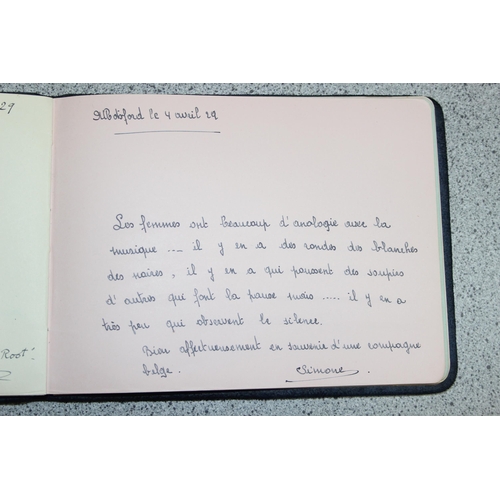 29
le 4 avril 29
Les femmes ont beaucoup d'analogie avec la
musique .... il y en a des rondes des blanches
des noires, il y en a qui poussent des soupirs
d'autres qui font la pause mais ..... il y en a
très peu qui observent le silence.
Bien affectueusement en souvenir d'une compagne
belge. Simone.
Root!